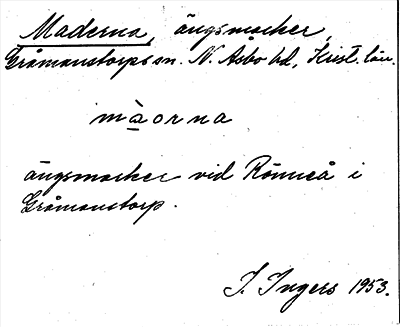 Maderna, ängsmarker,
Gråmanstorps sn. N. Åsbo hd, Krist. län.
màorna
ängsmarker vid Rönneå i
Gråmanstorp.
I. Ingers 1953.